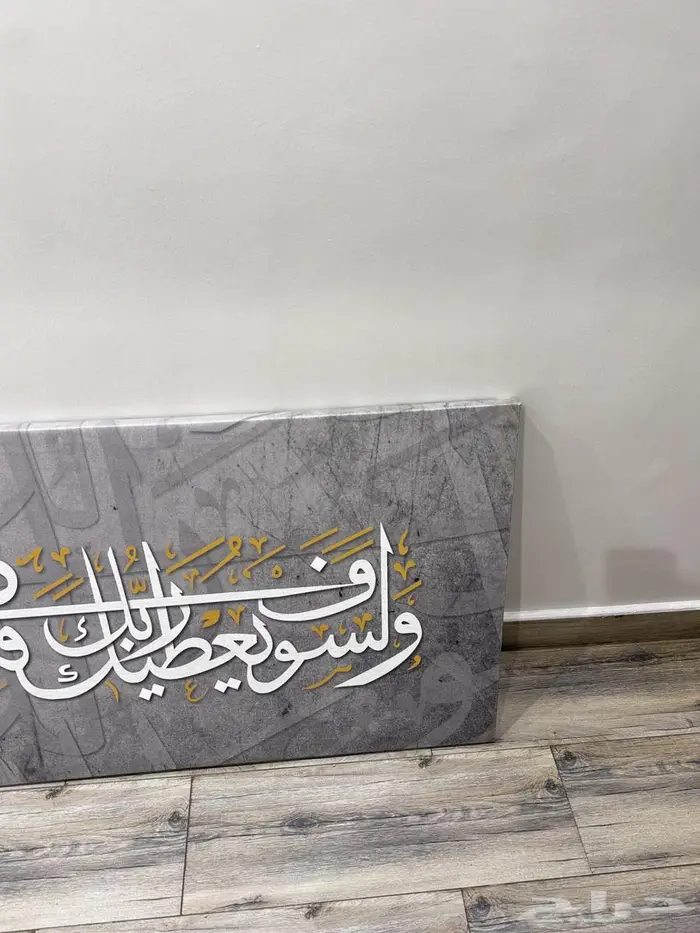 ولسوف يعطيك ربك
حراج